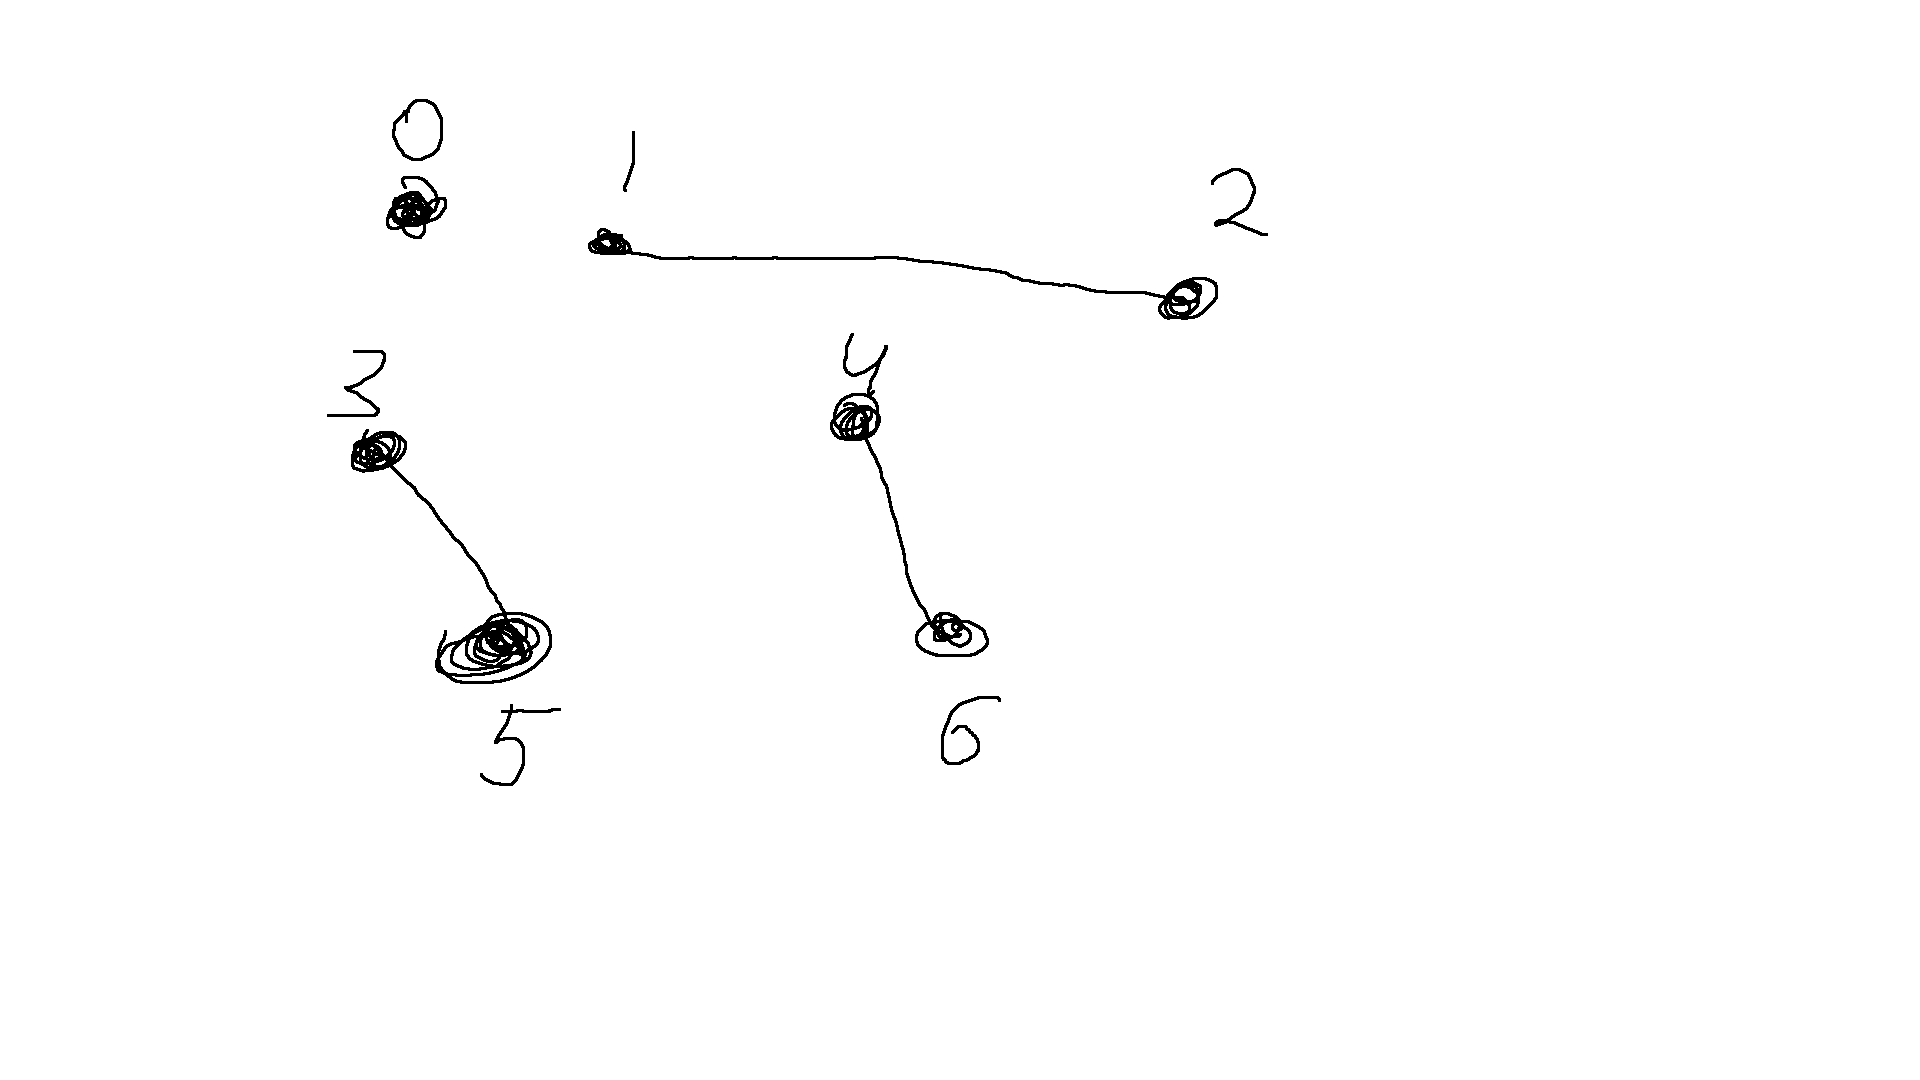 0
1
2
3
4
5
6